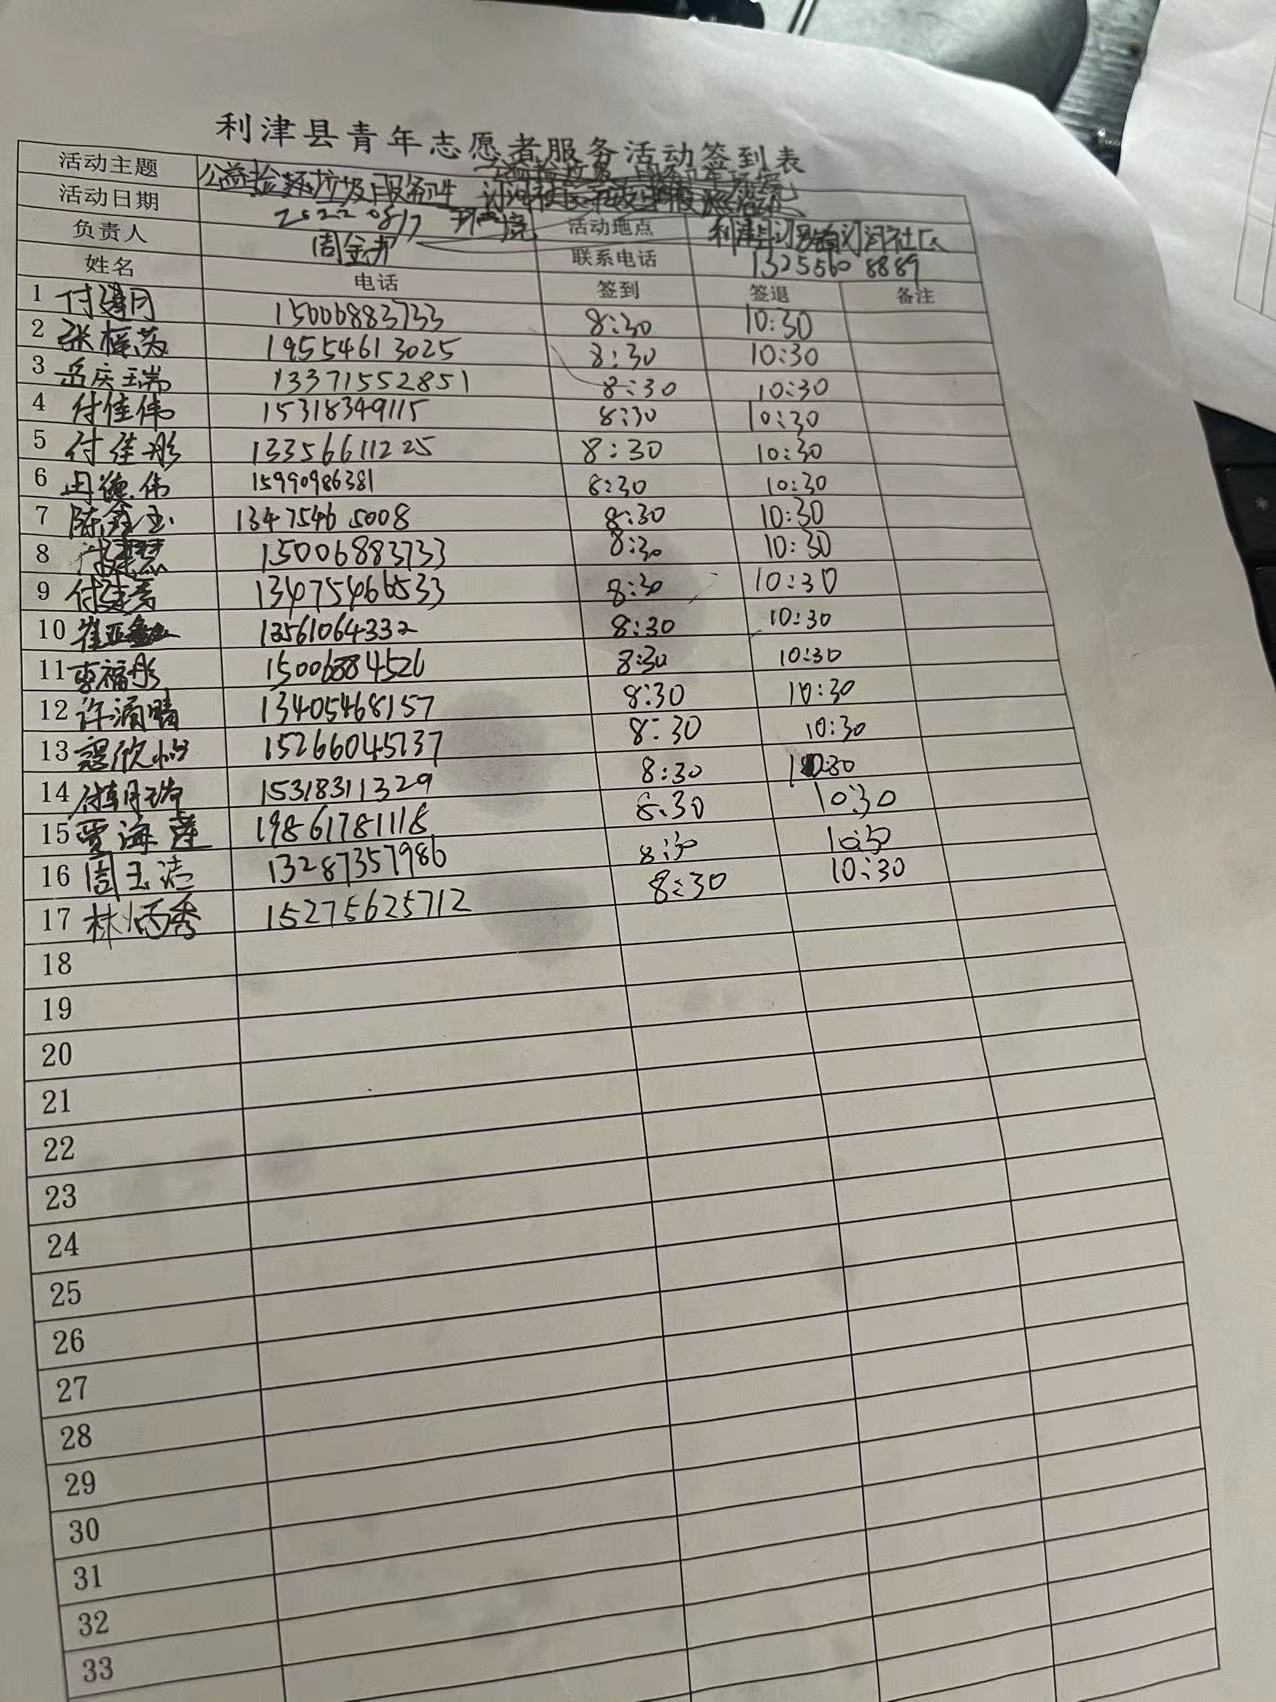 利津县青年志愿者服务活动签到表
活动主题 公益捡 垃圾服务
活动日期 20220817 环境 活动地点 利津县 社区
负责人 周金邦 联系电话 13255608889
姓名 电话 签到 签退 备注
1 付建 15006883733 8:30 10:30
2 张 19554613025 8:30 10:30
3 岳庆瑞 13371552851 8:30 10:30
4 付佳伟 15318349115 8:30 10:30
5 付佳彤 13356611225 8:30 10:30
6 德伟 15990986381 8:30 10:30
7 陈鑫玉 13475465008 8:30 10:30
8 15006883733 8:30 10:30
9 付建 13475466533 8:30 10:30
10 崔亚 13561064332 8:30 10:30
11 李福彤 15006884526 8:30 10:30
12 许涌晴 13405468157 8:30 10:30
13 寇欣怡 15266045737 8:30 10:30
14 付 15318311329 8:30 10:30
15 贾海莲 19861781118 8:30 10:30
16 周玉洁 13287357986 8:30 10:30
17 林炳秀 15275625712 8:30 10:30
18
19
20
21
22
23
24
25
26
27
28
29
30
31
32
33